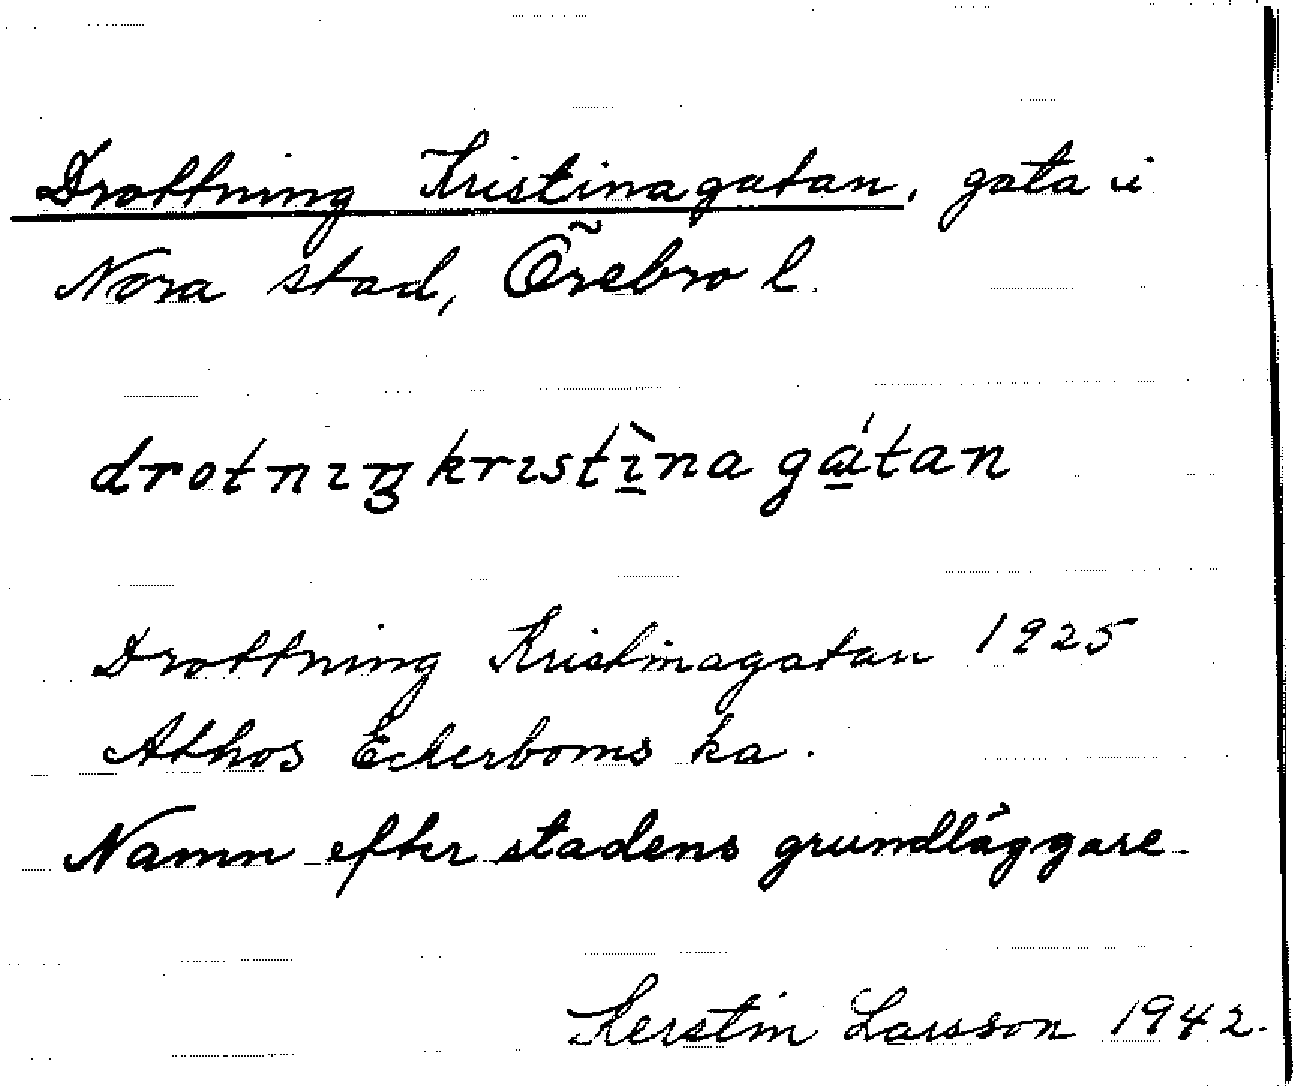 Drottning Kristinagatan, gata i
Nora stad, Örebro l.
drotnıŋkrıstı̱̀na gá̱tan
Drottning Kristinagatan 1925
Athos Eckerboms ka.
Namn efter stadens grundläggare.
Kerstin Larsson 1942.